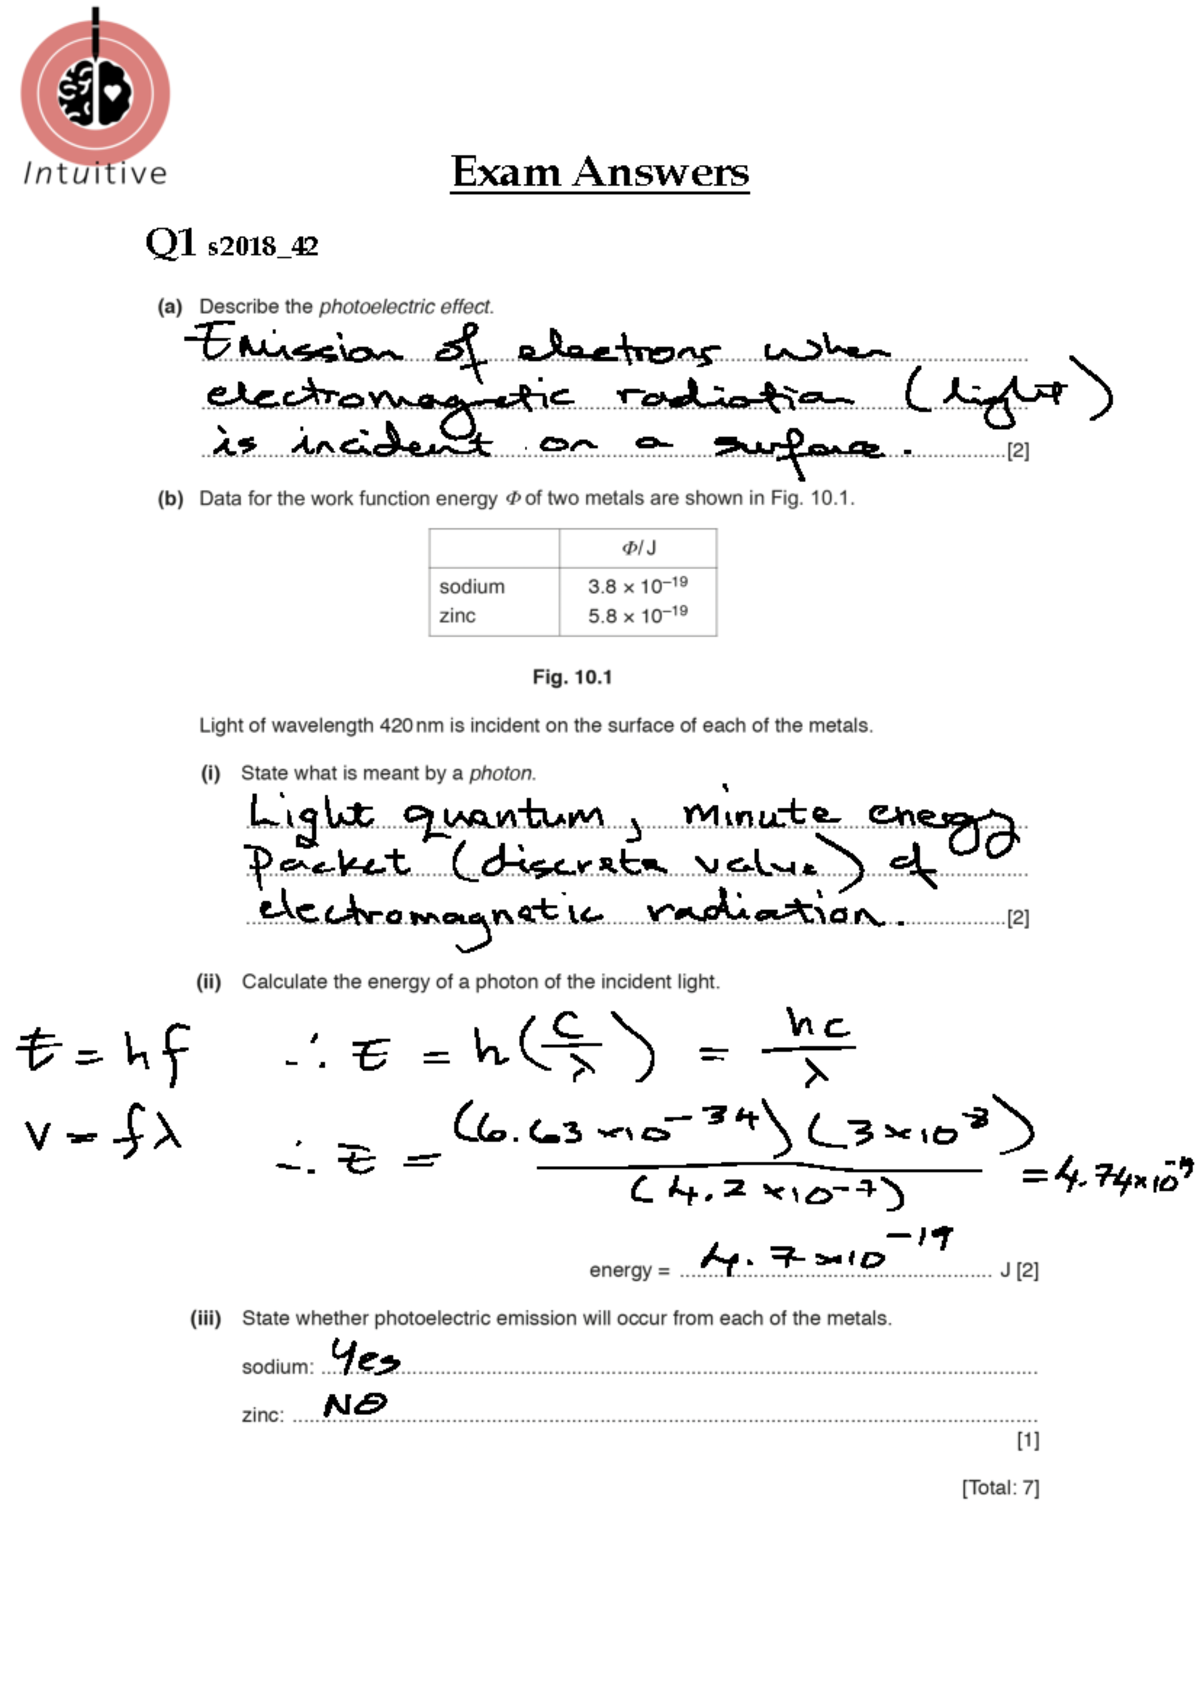 Intuitive
Exam Answers
Q1 s2018_42
(a) Describe the photoelectric effect.
Emission of electrons when
electromagnetic radiation (light)
is incident on a surface. [2]
(b) Data for the work function energy Φ of two metals are shown in Fig. 10.1.
Φ/J
sodium 3.8 × 10⁻¹⁹
zinc 5.8 × 10⁻¹⁹
Fig. 10.1
Light of wavelength 420 nm is incident on the surface of each of the metals.
(i) State what is meant by a photon.
Light quantum, minute energy
Packet (discrete value) of
electromagnetic radiation. [2]
(ii) Calculate the energy of a photon of the incident light.
E = hf ∴ E = h(c/λ) = hc/λ
v = fλ ∴ E = (6.63 × 10⁻³⁴)(3 × 10⁸)/(4.2 × 10⁻⁷) = 4.74 × 10⁻¹⁹
energy = 4.7 × 10⁻¹⁹ J [2]
(iii) State whether photoelectric emission will occur from each of the metals.
sodium: Yes
zinc: NO
[1]
[Total: 7]